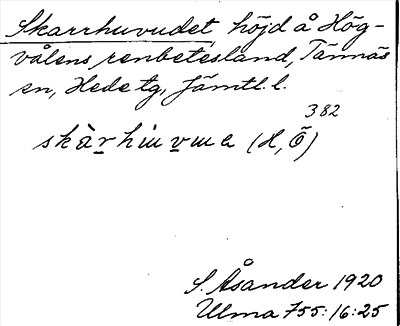 Skarrhuvudet, höjd å Hög-
vålens renbetesland, Tännäs
sn, Hede tg, Jämtl. l.
382
skàr̲hu̇v̲ɯa (H, Õ)
S. Åsander 1920
Ulma 755:16:25